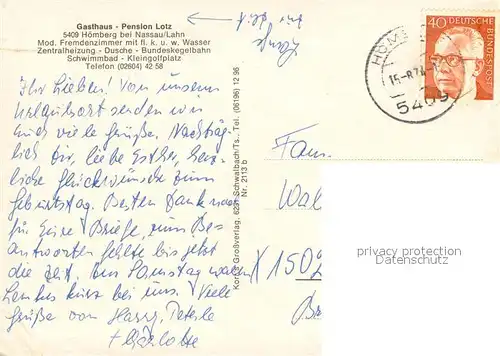 Gasthaus - Pension Lotz
5409 Hömberg bei Nassau/Lahn
Mod. Fremdenzimmer mit fl. k. u. w. Wasser
Zentralheizung - Dusche - Bundeskegelbahn
Schwimmbad - Kleingolfplatz
Telefon (02604) 42 58
Ihr Lieben! Von unserem
Urlaubsort senden wir
Euch viele Grüße. Nachträg-
lich Dir, liebe Esther, herz-
liche Glückwünsche zum
Geburtstag. Besten Dank
für Eure Briefe, zum Be-
antworten fehlte bis jetzt
die Zeit. Am Samstag waren
kurz bei uns. Viele
Grüße von Harry,
+ Charlotte
Verlag, 6231 Schwalbach/Ts., Tel. (06196) 12 95
Nr. 2113 b
40 DEUTSCHE
BUNDESPOST
HÖM
5409
Fam.
Wal
1502
privacy protection
Datenschutz